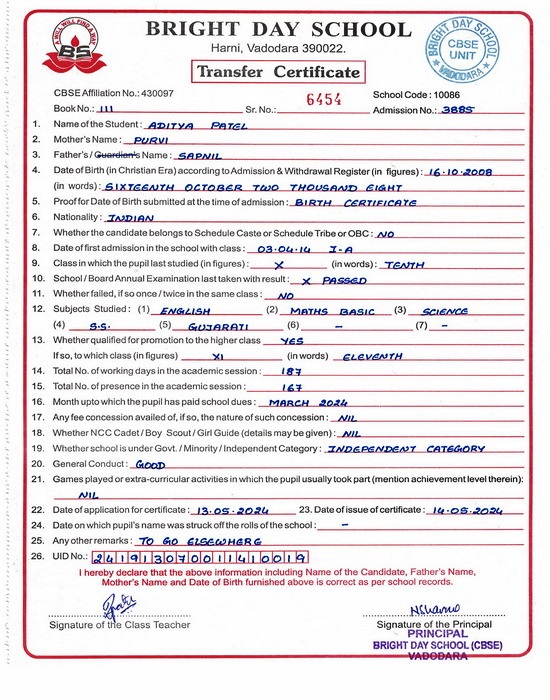 A WILL WILL FIND A WAY
BS
BRIGHT DAY SCHOOL
Harni, Vadodara 390022.
BRIGHT DAY SCHOOL
CBSE
UNIT
VADODARA
Transfer Certificate
CBSE Affiliation No.: 430097
6454
School Code : 10086
Book No.: III
Sr. No.:
Admission No.: 3885
1. Name of the Student : ADITYA PATEL
2. Mother's Name : PURVI
3. Father's / Guardian's Name : SAPNIL
4. Date of Birth (in Christian Era) according to Admission & Withdrawal Register (in figures) : 16.10.2008
(in words) : SIXTEENTH OCTOBER TWO THOUSAND EIGHT
5. Proof for Date of Birth submitted at the time of admission : BIRTH CERTIFICATE
6. Nationality : INDIAN
7. Whether the candidate belongs to Schedule Caste or Schedule Tribe or OBC : NO
8. Date of first admission in the school with class : 03.04.14 I-A
9. Class in which the pupil last studied (in figures) : X (in words) : TENTH
10. School / Board Annual Examination last taken with result : X PASSED
11. Whether failed, if so once / twice in the same class : NO
12. Subjects Studied : (1) ENGLISH (2) MATHS BASIC (3) SCIENCE
(4) S.S. (5) GUJARATI (6) – (7) –
13. Whether qualified for promotion to the higher class YES
If so, to which class (in figures) XI (in words) ELEVENTH
14. Total No. of working days in the academic session : 187
15. Total No. of presence in the academic session : 167
16. Month upto which the pupil has paid school dues : MARCH 2024
17. Any fee concession availed of, if so, the nature of such concession : NIL
18. Whether NCC Cadet / Boy Scout / Girl Guide (details may be given) : NIL
19. Whether school is under Govt. / Minority / Independent Category : INDEPENDENT CATEGORY
20. General Conduct : GOOD
21. Games played or extra-curricular activities in which the pupil usually took part (mention achievement level therein):
NIL
22. Date of application for certificate : 13.05.2024 23. Date of issue of certificate : 14.05.2024
24. Date on which pupil's name was struck off the rolls of the school : –
25. Any other remarks : TO GO ELSEWHERE
26. UID No.: 241913070011410019
I hereby declare that the above information including Name of the Candidate, Father's Name,
Mother's Name and Date of Birth furnished above is correct as per school records.
Signature of the Class Teacher
Signature of the Principal
PRINCIPAL
BRIGHT DAY SCHOOL (CBSE)
VADODARA